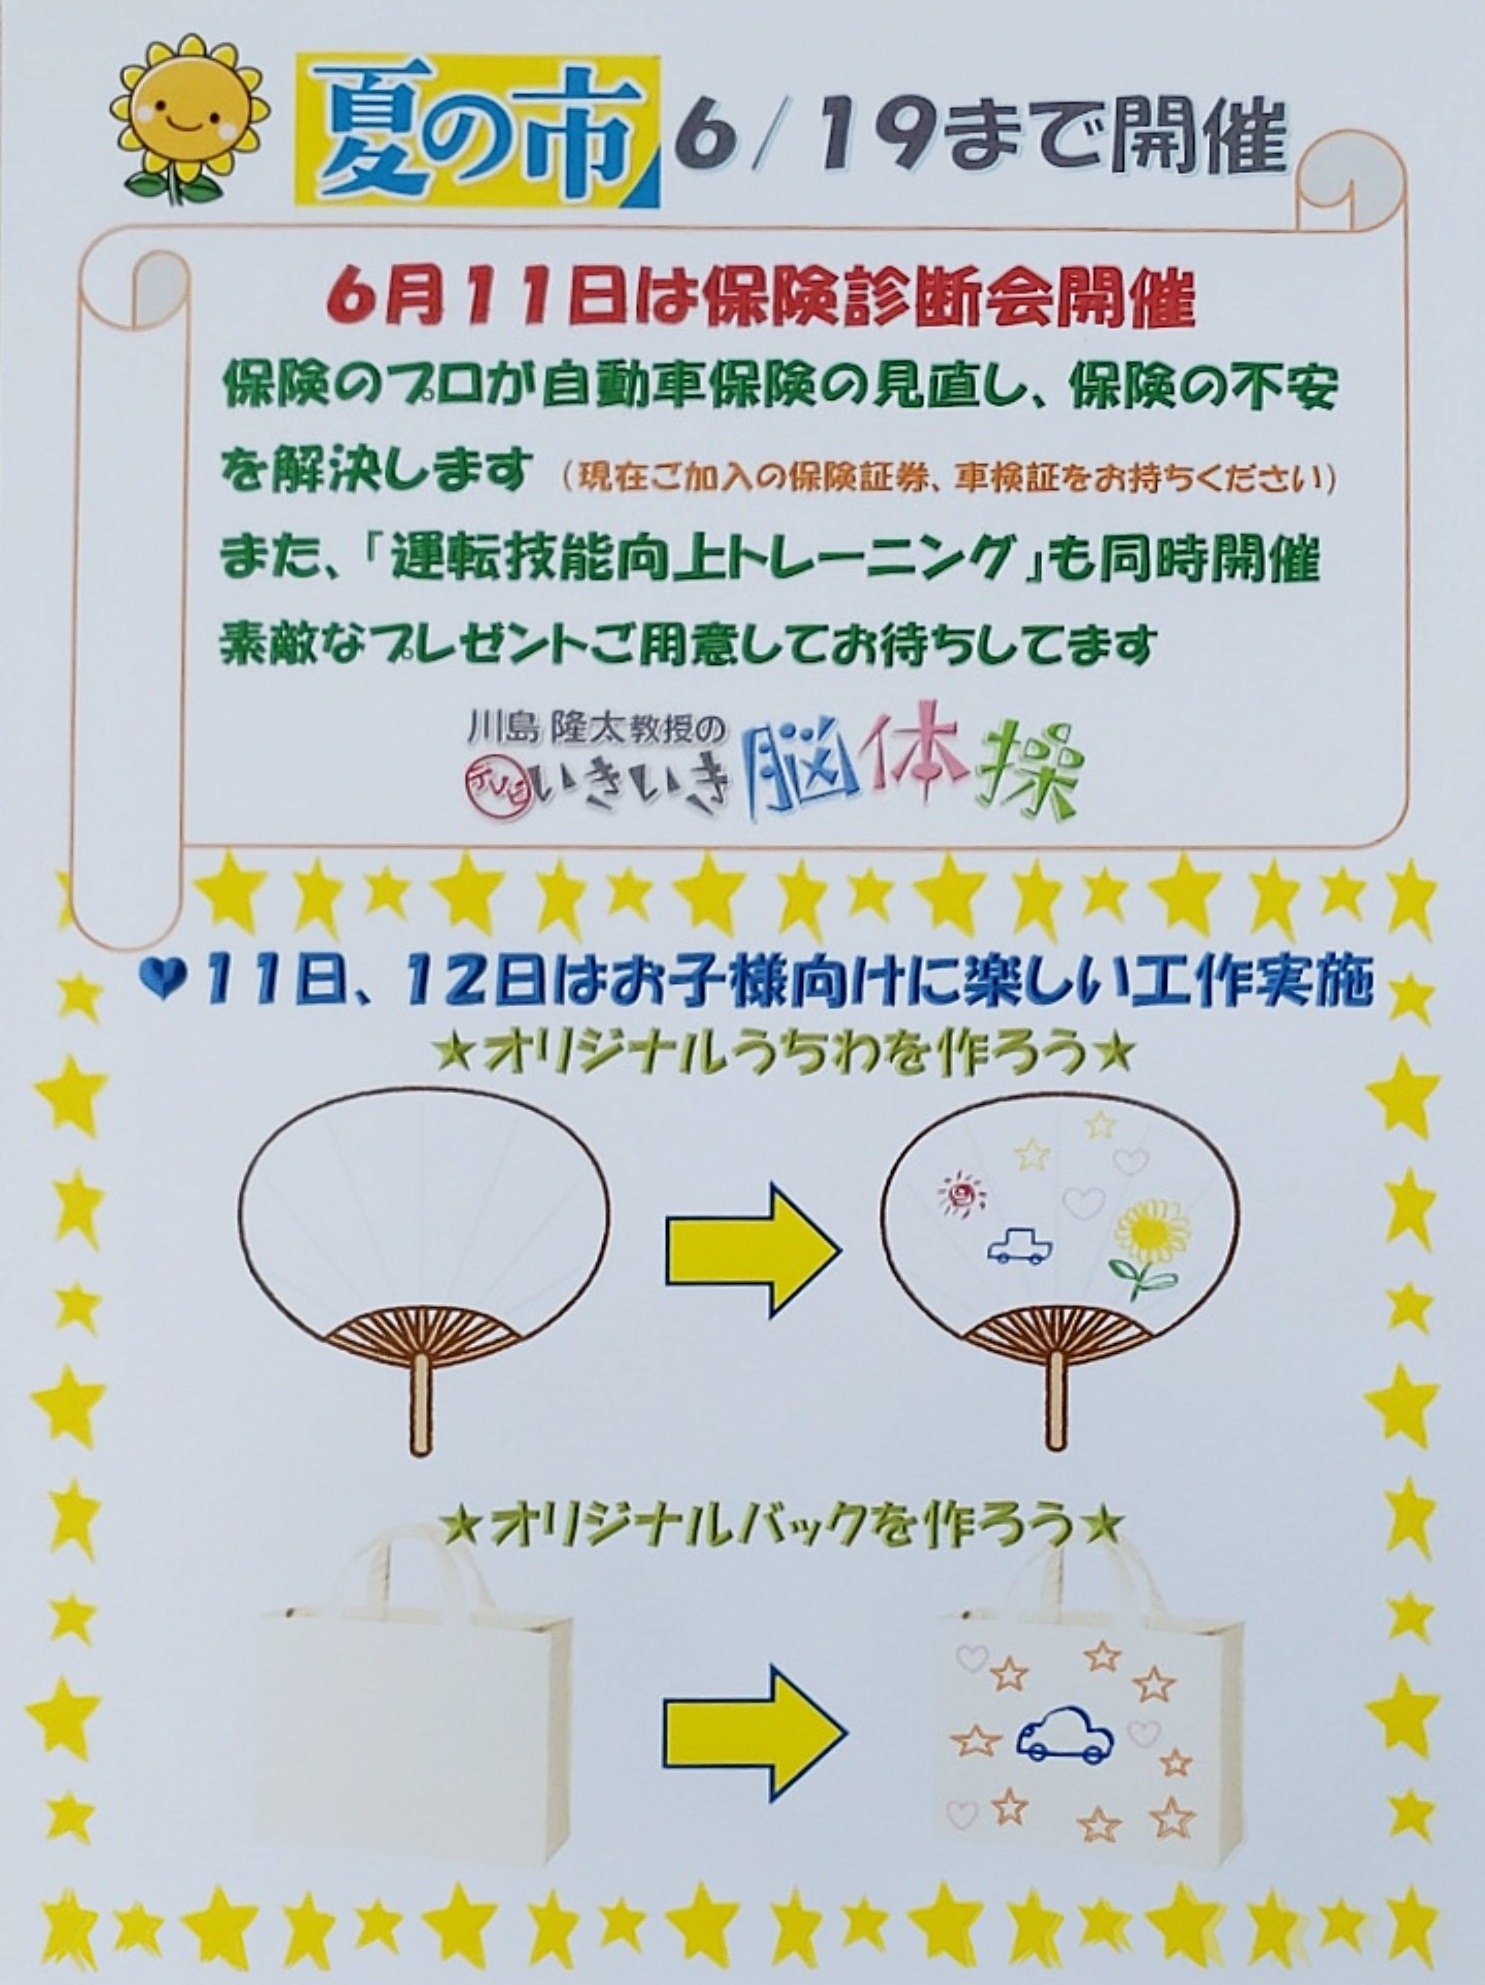 夏の市 6/19まで開催
6月11日は保険診断会開催
保険のプロが自動車保険の見直し、保険の不安
を解決します（現在ご加入の保険証券、車検証をお持ちください）
また、「運転技能向上トレーニング」も同時開催
素敵なプレゼントご用意してお待ちしてます
川島 隆太教授の
テレビいきいき脳体操
♥11日、12日はお子様向けに楽しい工作実施
★オリジナルうちわを作ろう★
★オリジナルバックを作ろう★